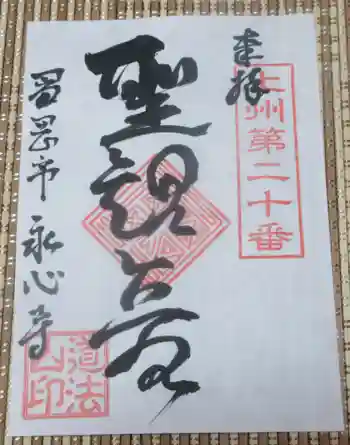 奉拝
上州第二十番
聖観音
富岡市 永心寺
道法山印